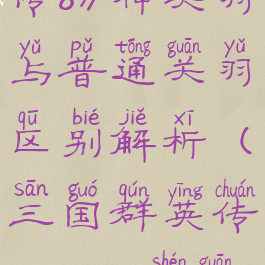 yǔ pǔ tōng guān yǔ
与普通关羽
qū bié jiě xī
区别解析（
sān guó qún yīng chuán
三国群英传
shén guān